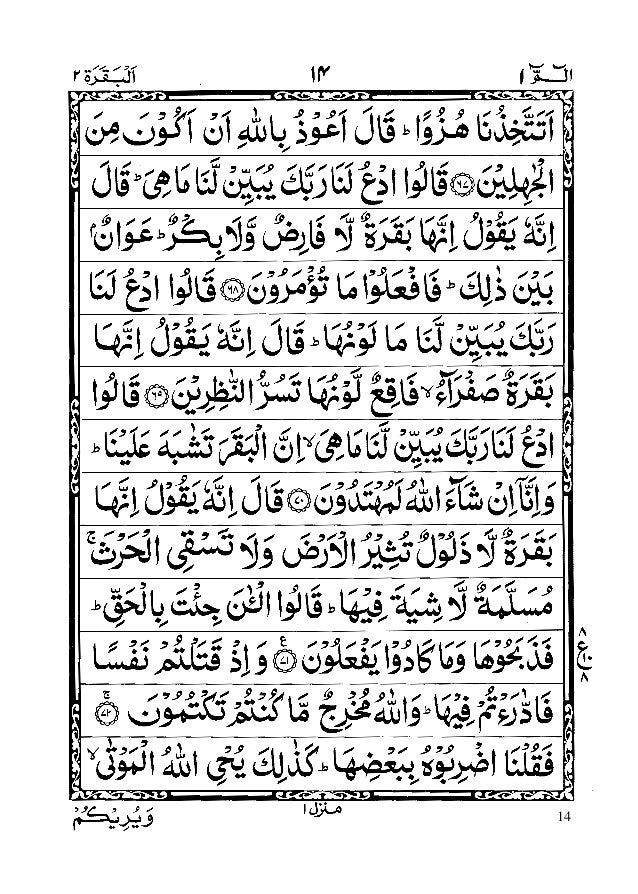 الٓمّٓ ١ ١٤ اَلْبَقَرَة ٢
اَتَتَّخِذُنَا هُزُوًا ؕ قَالَ اَعُوْذُ بِاللّٰهِ اَنْ اَكُوْنَ مِنَ
الْجٰهِلِيْنَ ﴿٦٧﴾ قَالُوا ادْعُ لَنَا رَبَّكَ يُبَيِّنْ لَّنَا مَا هِيَ ؕ قَالَ
اِنَّهٗ يَقُوْلُ اِنَّهَا بَقَرَةٌ لَّا فَارِضٌ وَّلَا بِكْرٌ ؕ عَوَانٌۢ
بَيْنَ ذٰلِكَ ؕ فَافْعَلُوْا مَا تُؤْمَرُوْنَ ﴿٦٨﴾ قَالُوا ادْعُ لَنَا
رَبَّكَ يُبَيِّنْ لَّنَا مَا لَوْنُهَا ؕ قَالَ اِنَّهٗ يَقُوْلُ اِنَّهَا
بَقَرَةٌ صَفْرَآءُ ۙ فَاقِعٌ لَّوْنُهَا تَسُرُّ النّٰظِرِيْنَ ﴿٦٩﴾ قَالُوا
ادْعُ لَنَا رَبَّكَ يُبَيِّنْ لَّنَا مَا هِيَ ۙ اِنَّ الْبَقَرَ تَشٰبَهَ عَلَيْنَا ؕ
وَاِنَّاۤ اِنْ شَآءَ اللّٰهُ لَمُهْتَدُوْنَ ﴿٧٠﴾ قَالَ اِنَّهٗ يَقُوْلُ اِنَّهَا
بَقَرَةٌ لَّا ذَلُوْلٌ تُثِيْرُ الْاَرْضَ وَلَا تَسْقِى الْحَرْثَ ۚ
مُسَلَّمَةٌ لَّا شِيَةَ فِيْهَا ؕ قَالُوا الْـٰٔنَ جِئْتَ بِالْحَقِّ ؕ
فَذَبَحُوْهَا وَمَا كَادُوْا يَفْعَلُوْنَ ﴿٧١﴾ ع وَاِذْ قَتَلْتُمْ نَفْسًا
٨ ع ١٠ ٨
فَادّٰرَءْتُمْ فِيْهَا ؕ وَاللّٰهُ مُخْرِجٌ مَّا كُنْتُمْ تَكْتُمُوْنَ ۚ ﴿٧٢﴾
فَقُلْنَا اضْرِبُوْهُ بِبَعْضِهَا ؕ كَذٰلِكَ يُحْىِ اللّٰهُ الْمَوْتٰى ۙ
14 منزل ١ وَيُرِيْكُمْ